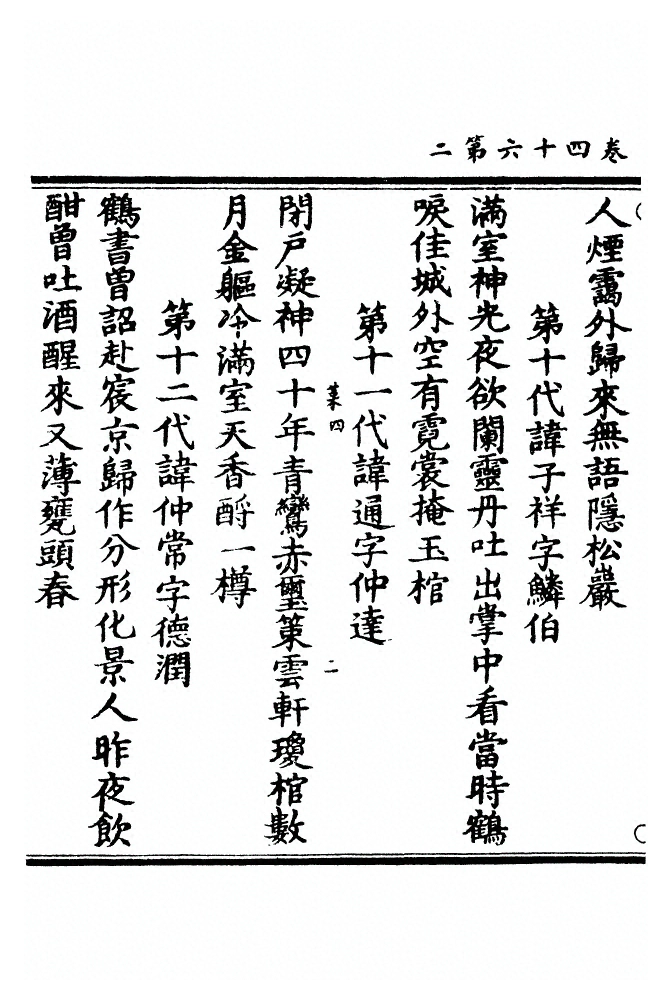 卷四十六第二
人煙靄外歸來無語隱松巖
第十代諱子祥字鱗伯
滿室神光夜欲闌靈丹吐出掌中看當時鶴
唳佳城外空有霓裳掩玉棺
第十一代諱通字仲達
菜四
二
閉戶凝神四十年青鸞赤璽策雲軒瓊棺數
月金軀冷滿室天香酹一樽
第十二代諱仲常字德潤
鶴書曾詔赴宸京歸作分形化景人昨夜飲
酣曾吐酒醒來又薄甕頭春